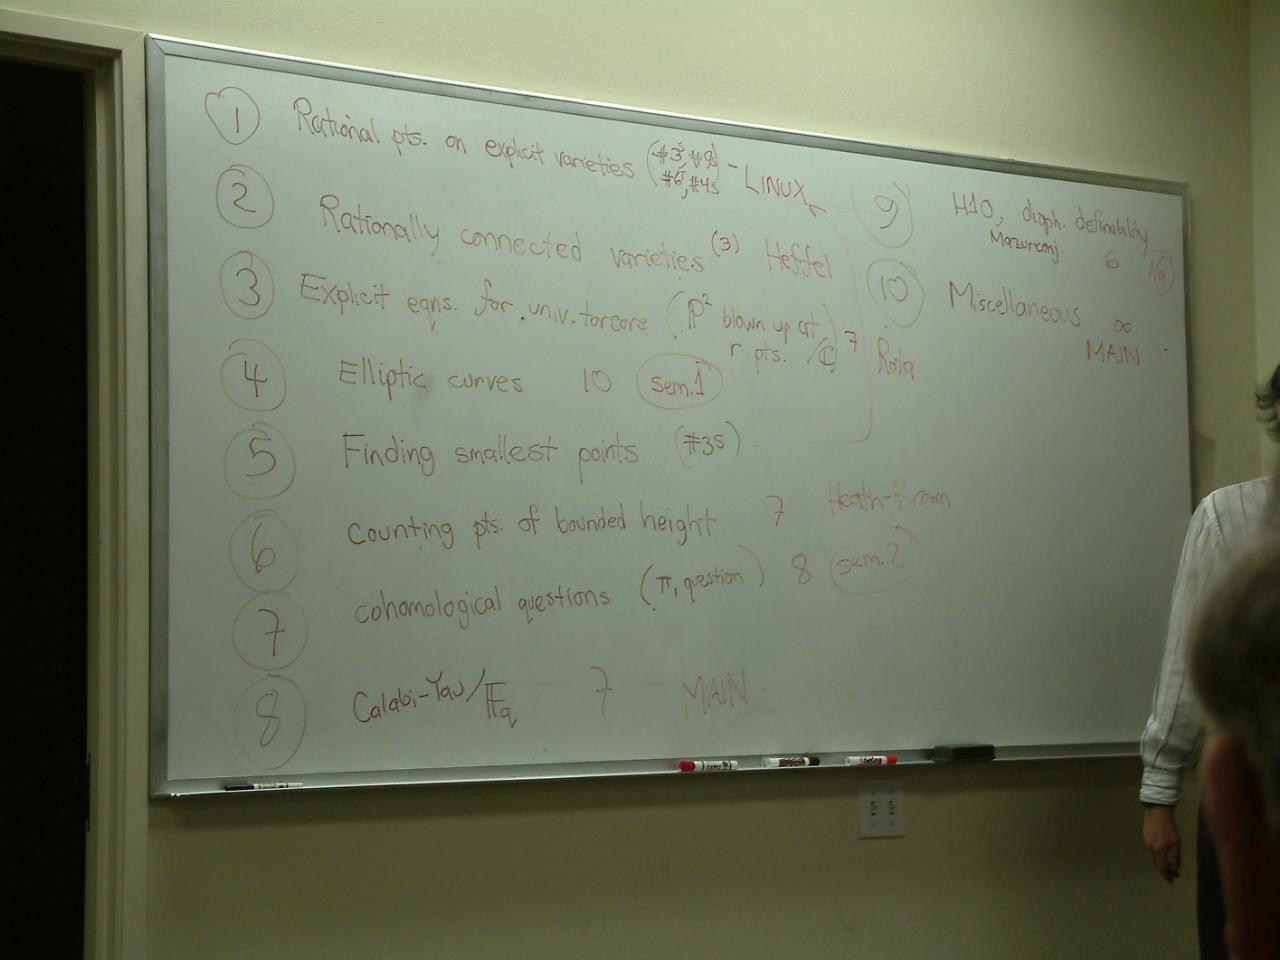 1 Rational pts. on explicit varieties (#3s, #9s) - LINUX
#6, #4s
2 Rationally connected varieties (3) Heffel
3 Explicit eqns. for univ. torsors (ℙ² blown up at 7 Rota
r pts. /ℂ)
4 Elliptic curves 10 sem. 1
5 Finding smallest points (#3s)
6 counting pts. of bounded height 7 Heath-Brown
7 cohomological questions (π, question) 8 sem. 2
8 Calabi-Yau/𝔽q 7 MAIN
9 H10, dioph. definability
Mazur conj. 6
10 Miscellaneous ∞
MAIN